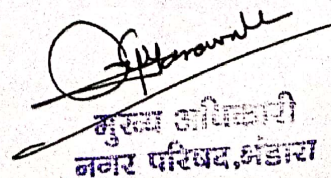 मुख्य अधिकारी
नगर परिषद,भंडारा